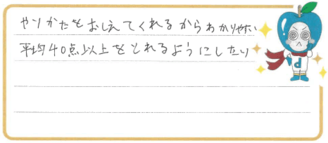 やりかたをおしえてくれるからわかりやすい
平均40点以上をとれるようにしたい
d